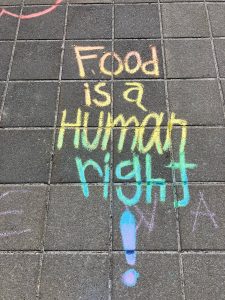 Food
is a
Human
right
!